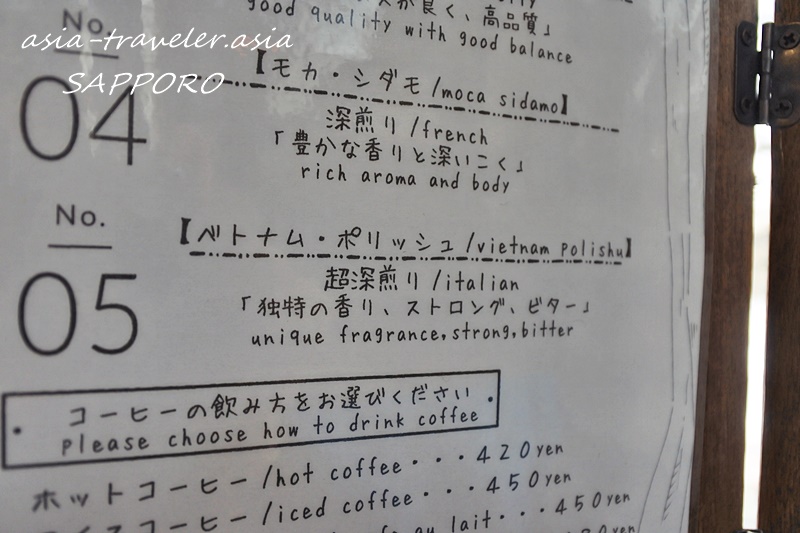 が良く、高品質」
good quality with good balance
asia-traveler.asia
SAPPORO
No.
04
【モカ・シダモ/moca sidamo】
深煎り/french
「豊かな香りと深いこく」
rich aroma and body
No.
05
【ベトナム・ポリッシュ/vietnam polishu】
超深煎り/italian
「独特の香り、ストロング、ビター」
unique fragrance,strong,bitter
コーヒーの飲み方をお選びください
please choose how to drink coffee
ホットコーヒー/hot coffee・・・420yen
アイスコーヒー/iced coffee・・・450yen
au lait・・・450yen
yen